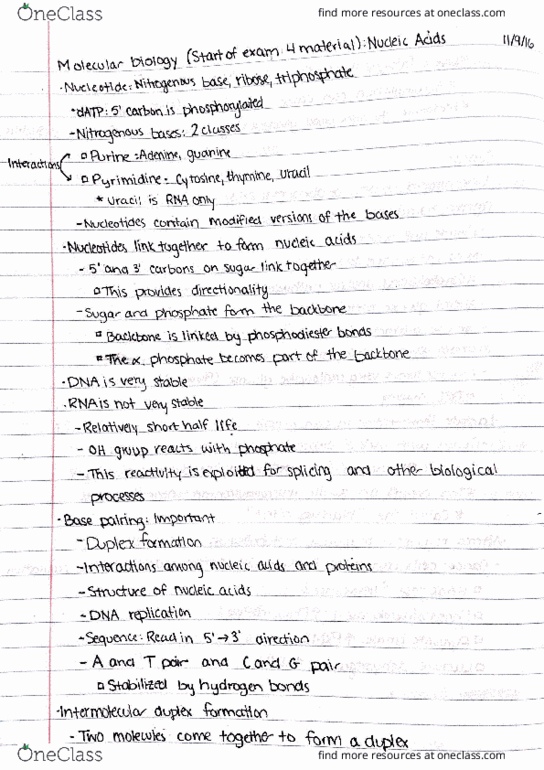 OneClass
find more resources at oneclass.com
11/9/16
Molecular biology (Start of exam 4 material): Nucleic Acids
·Nucleotide: Nitrogenous base, ribose, triphosphate
·dATP: 5' carbon is phosphorylated
-Nitrogenous bases: 2 classes
Interactions
▫ Purine: Adenine, guanine
▫ Pyrimidine: Cytosine, thymine, uracil
* Uracil is RNA only
-Nucleotides contain modified versions of the bases
·Nucleotides link together to form nucleic acids
- 5' and 3' carbons on sugar link together
▫ This provides directionality
-Sugar and phosphate form the backbone
▫ Backbone is linked by phosphodiester bonds
▫ The α phosphate becomes part of the backbone
·DNA is very stable
·RNA is not very stable
-Relatively short half life
- OH group reacts with phosphate
-This reactivity is exploited for splicing and other biological
processes
·Base pairing: Important
-Duplex formation
-Interactions among nucleic acids and proteins
-Structure of nucleic acids
-DNA replication
-Sequence: Read in 5'→3' direction
- A and T pair and C and G pair
▫ Stabilized by hydrogen bonds
·Intermolecular duplex formation
- Two molecules come together to form a duplex
OneClass
find more resources at oneclass.com